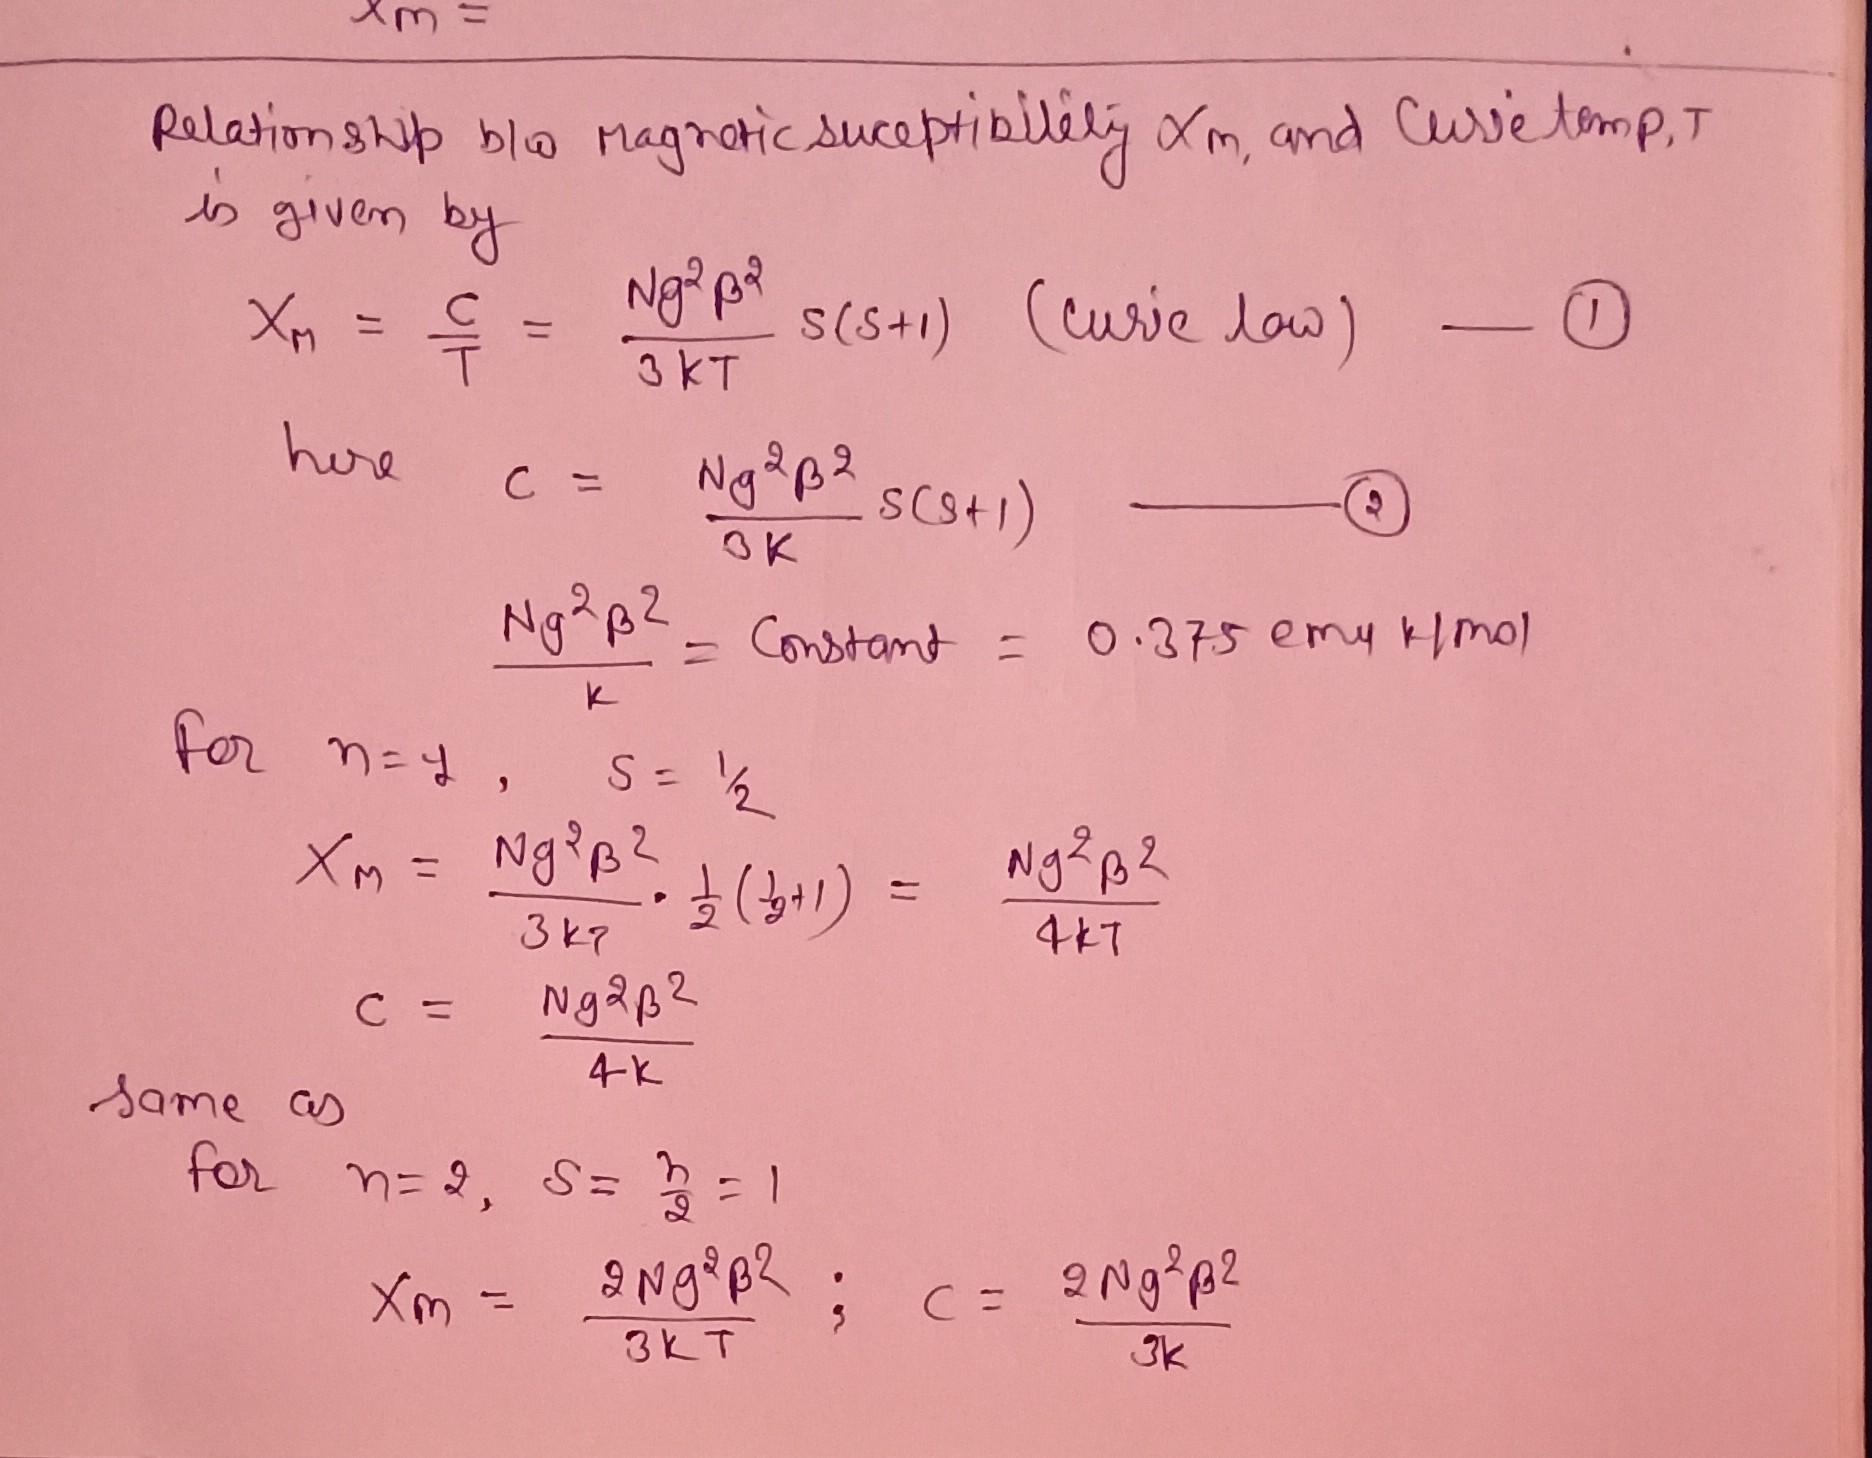 Xm =
Relationship b/w Magnetic suceptibility Xm, and Curie temp, T
is given by
Xm = C/T = Ng²β²/3KT S(S+1) (Curie law) — ①
here C = Ng²β²/3K S(S+1) — ②
Ng²β²/K = Constant = 0.375 emu K/mol
for n=1, S= 1/2
Xm = Ng²β²/3KT · 1/2(1/2+1) = Ng²β²/4KT
C = Ng²β²/4K
same as
for n=2, S= n/2 = 1
Xm = 2Ng²β²/3KT ; C = 2Ng²β²/3K